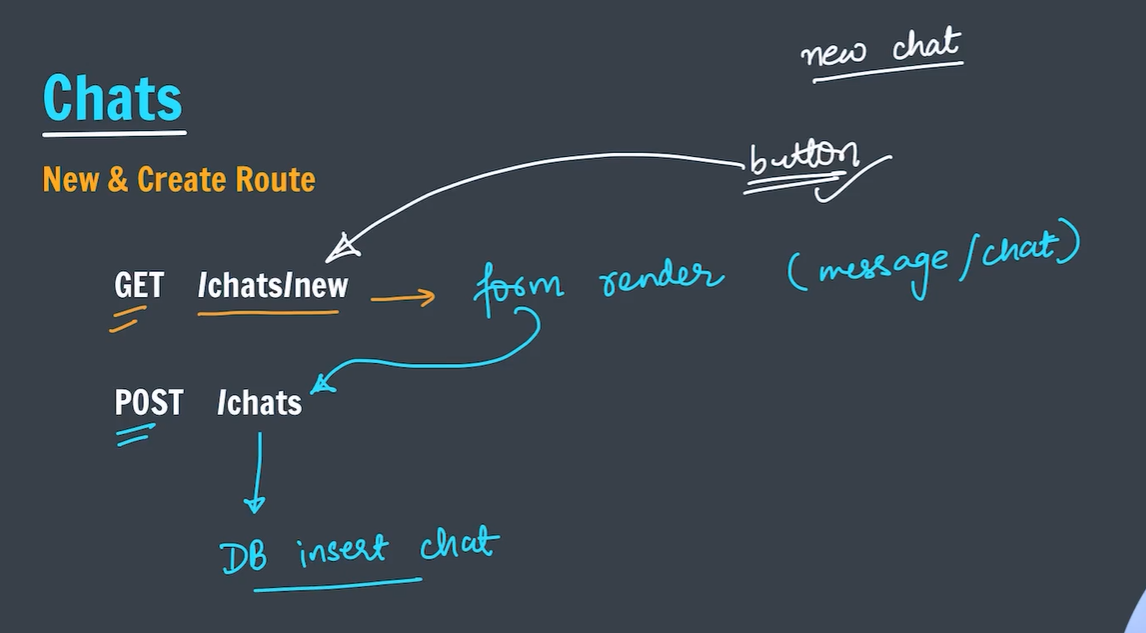 new chat
Chats
button
New & Create Route
GET /chats/new form render (message/chat)
POST /chats
DB insert chat